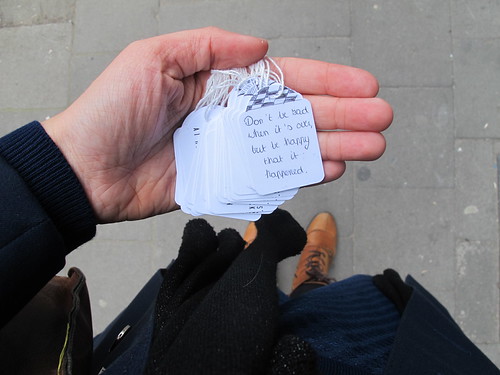 Don't be sad
when it's over,
but be happy
that it
happened.